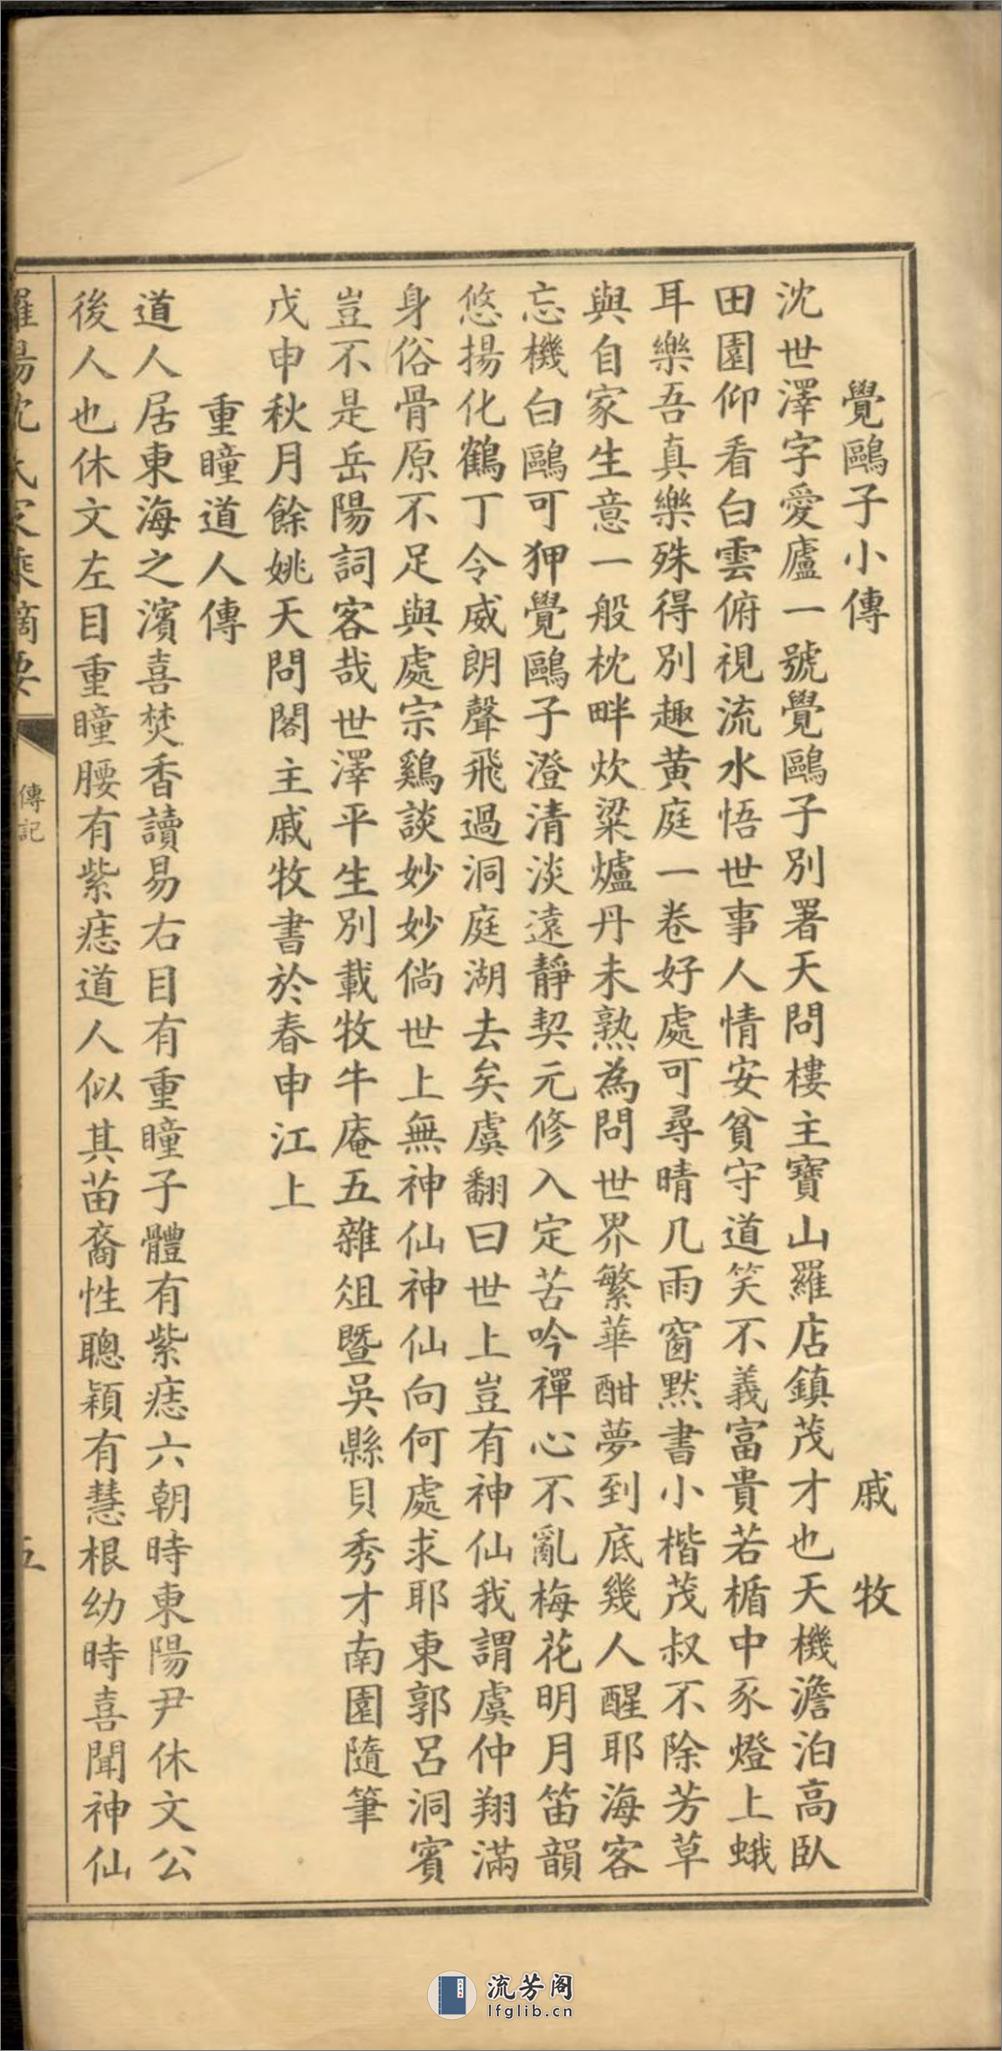 覺鷗子小傳 戚牧
沈世澤字愛廬一號覺鷗子別署天問樓主寶山羅店鎮茂才也天機澹泊高臥
田園仰看白雲俯視流水悟世事人情安貧守道笑不義富貴若楯中豕燈上蛾
耳樂吾真樂殊得別趣黃庭一卷好處可尋晴几雨窗默書小楷茂叔不除芳草
與自家生意一般枕畔炊粱爐丹未熟為問世界繁華酣夢到底幾人醒耶海客
忘機白鷗可狎覺鷗子澄清淡遠靜契元修入定苦吟禪心不亂梅花明月笛韻
悠揚化鶴丁令威朗聲飛過洞庭湖去矣虞翻曰世上豈有神仙我謂虞仲翔滿
身俗骨原不足與處宗鷄談妙妙倘世上無神仙神仙向何處求耶東郭呂洞賓
豈不是岳陽詞客哉世澤平生別載牧牛庵五雜俎暨吳縣貝秀才南園隨筆
戊申秋月餘姚天問閣主戚牧書於春申江上
重瞳道人傳
道人居東海之濱喜焚香讀易右目有重瞳子體有紫痣六朝時東陽尹休文公
後人也休文左目重瞳腰有紫痣道人似其苗裔性聰穎有慧根幼時喜聞神仙
羅陽沈氏家乘摘要
傳記
五
流芳阁
lfglib.cn